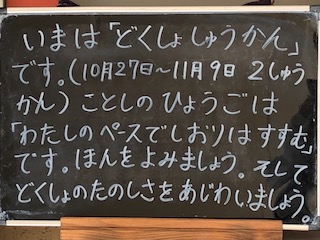 いまは「どくしょしゅうかん」
です。(10月27日～11月9日 2しゅう
かん) ことしのひょうごは
「わたしのペースでしおりはすすむ」
です。ほんをよみましょう。そして
どくしょのたのしさをあじわいましょう。